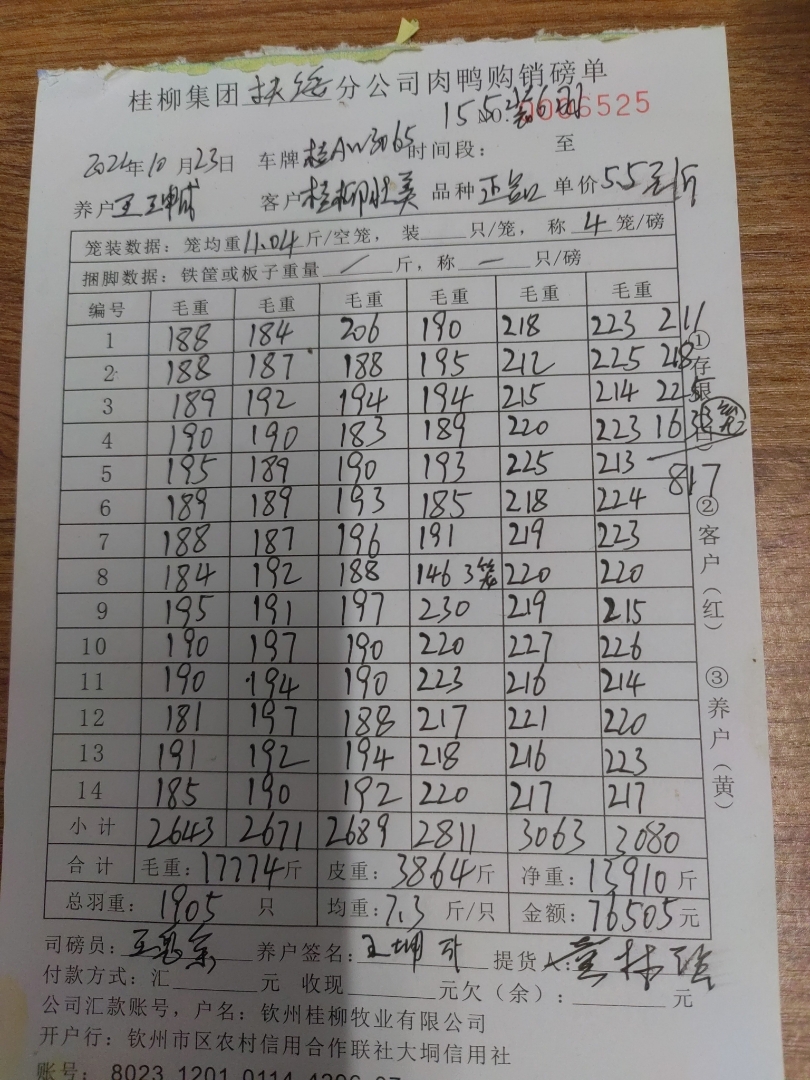 桂柳集团扶绥分公司肉鸭购销磅单
NO: 0006525
10月23日 车牌桂AW3065 时间段： 至
养户 客户桂柳壮美 品种正品 单价5.5元/斤
笼装数据：笼均重11.04斤/空笼，装 只/笼，称4笼/磅
捆脚数据：铁筐或板子重量／斤，称一只/磅
编号 毛重 毛重 毛重 毛重 毛重 毛重
1 188 184 206 190 218 223 211
2 188 187 188 195 212 225 218
3 189 192 194 194 215 214 225
4 190 190 183 189 220 223 163 3笼
5 195 189 190 193 225 213
817
6 189 189 193 185 218 224
7 188 187 196 191 219 223
8 184 192 188 146 3笼 220 220
9 195 191 197 230 219 215
10 190 197 190 220 227 226
11 190 194 190 223 216 214
12 181 197 188 217 221 220
13 191 192 194 218 216 223
14 185 190 192 220 217 217
小计 2643 2671 2689 2811 3063 3080
合计 毛重：17774斤 皮重：3864斤 净重：13910斤
总羽重：1905 只 均重：7.3斤/只 金额：76505元
司磅员： 养户签名： 提货人：
付款方式：汇 元 收现 元欠（余）： 元
公司汇款账号，户名：钦州桂柳牧业有限公司
开户行：钦州市区农村信用合作联社大垌信用社
账号： 8023 1201 0114
①存根（白） ②客户（红） ③养户（黄）